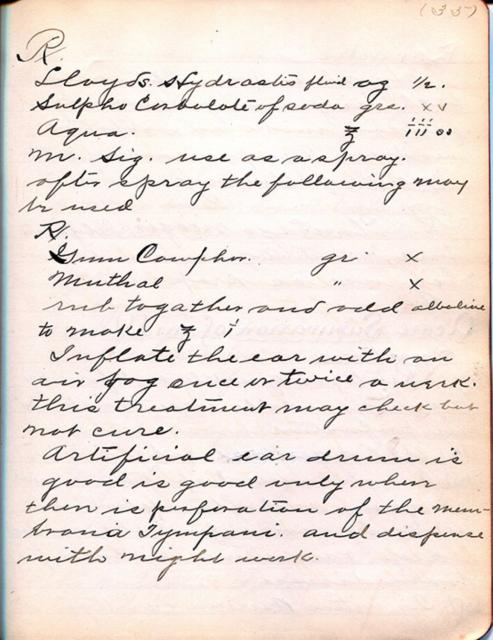 (35)
R.
Lloyds Hydrastis fluid oz ½.
Sulpho Carbolate of soda grs. xv
Aqua. ℥ iii
M. Sig. use as a spray.
after spray the following may
be used
R.
Gum Camphor. gr x
Menthal " x
rub together and add alboline
to make ℥ i
Inflate the ear with an
air bag once or twice a week.
this treatment may check but
not cure.
Artificial ear drum is
good is good only when
there is perforation of the mem-
brania Tympani. and dispense
with night work.